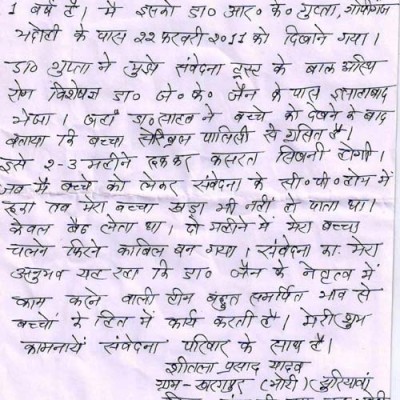 1 वर्ष है। मैं इसको डा० आर० के० गुप्ता, गोपीगंज
भदोही के पास 22 फरवरी 2011 को दिखाने गया।
डा० गुप्ता ने मुझे संवेदना ट्रस्ट के बाल अस्थि
रोग विशेषज्ञ डा० जे० के० जैन के पास इलाहाबाद
भेजा। जहां डा० साहब ने बच्चे को देखने के बाद
बताया कि बच्चा सेरेब्रल पालिसी से ग्रसित है।
इसे 2-3 महीने रूककर कसरत सिखनी होगी।
जब मैं बच्चे को लेकर संवेदना के सी० पी० होम में
रूका तब मेरा बच्चा खड़ा भी नहीं हो पाता था।
केवल बैठ लेता था। दो महीने में मेरा बच्चा
चलने फिरने काबिल बन गया। संवेदना का मेरा
अनुभव यह रहा कि डा० जैन के नेतृत्व में
काम करने वाली टीम बहुत समर्पित भाव से
बच्चों के हित में कार्य करती है। मेरी शुभ
कामनायें संवेदना परिवार के साथ है।
शीतला प्रसाद यादव
ग्राम-खरगपुर (मोरी) सुरियावां